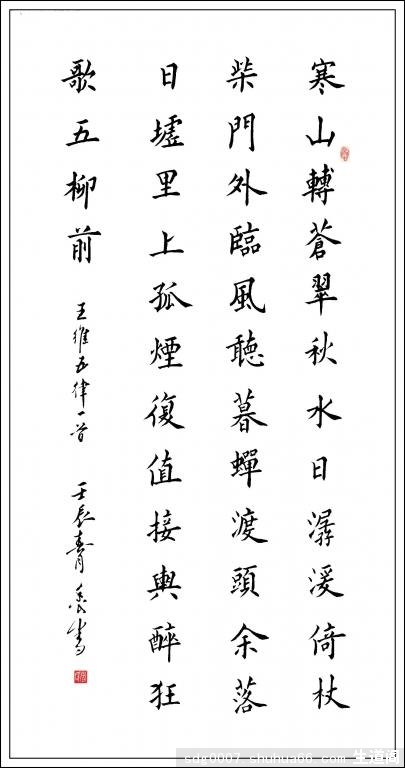 寒山轉蒼翠秋水日潺湲倚杖
柴門外臨風聽暮蟬渡頭余落
日墟里上孤煙復值接輿醉狂
歌五柳前
王維五律一首 壬辰青書
sdg0007.chuhua66.com 生道阁